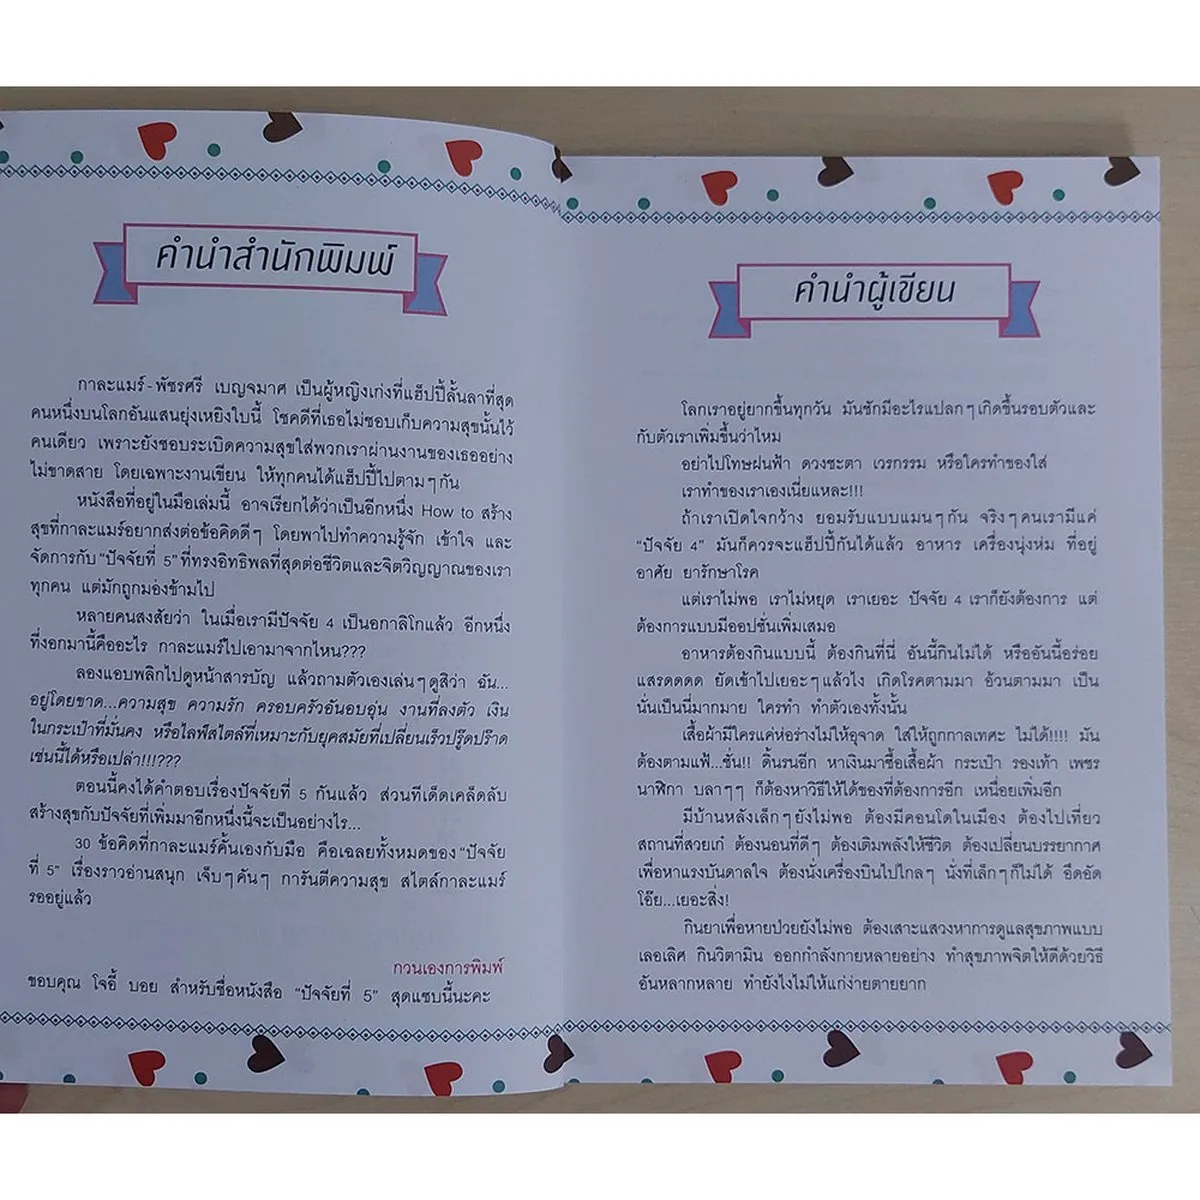 คำนำสำนักพิมพ์
กาละแมร์-พัชรศรี เบญจมาศ เป็นผู้หญิงเก่งที่แฮ็ปปี้ลั้นลาที่สุด
คนหนึ่งบนโลกอันแสนยุ่งเหยิงใบนี้ โชคดีที่เธอไม่ชอบเก็บความสุขนั้นไว้
คนเดียว เพราะยังชอบระเบิดความสุขใส่พวกเราผ่านงานของเธออย่าง
ไม่ขาดสาย โดยเฉพาะงานเขียน ให้ทุกคนได้แฮ็ปปี้ไปตามๆกัน
หนังสือที่อยู่ในมือเล่มนี้ อาจเรียกได้ว่าเป็นอีกหนึ่ง How to สร้าง
สุขที่กาละแมร์อยากส่งต่อข้อคิดดีๆ โดยพาไปทำความรู้จัก เข้าใจ และ
จัดการกับ "ปัจจัยที่ 5" ที่ทรงอิทธิพลที่สุดต่อชีวิตและจิตวิญญาณของเรา
ทุกคน แต่มักถูกมองข้ามไป
หลายคนสงสัยว่า ในเมื่อเรามีปัจจัย 4 เป็นอกาลิโกแล้ว อีกหนึ่ง
ที่งอกมานี้คืออะไร กาละแมร์ไปเอามาจากไหน???
ลองแอบพลิกไปดูหน้าสารบัญ แล้วถามตัวเองเล่นๆดูสิว่า ฉัน...
อยู่โดยขาด...ความสุข ความรัก ครอบครัวอันอบอุ่น งานที่ลงตัว เงิน
ในกระเป๋าที่มั่นคง หรือไลฟ์สไตล์ที่เหมาะกับยุคสมัยที่เปลี่ยนเร็วปรู๊ดปร๊าด
เช่นนี้ได้หรือเปล่า!!!???
ตอนนี้คงได้คำตอบเรื่องปัจจัยที่ 5 กันแล้ว ส่วนทีเด็ดเคล็ดลับ
สร้างสุขกับปัจจัยที่เพิ่มมาอีกหนึ่งนี้จะเป็นอย่างไร...
30 ข้อคิดที่กาละแมร์คั้นเองกับมือ คือเฉลยทั้งหมดของ "ปัจจัย
ที่ 5" เรื่องราวอ่านสนุก เจ็บๆคันๆ การันตีความสุข สไตล์กาละแมร์
รออยู่แล้ว
กวนเองการพิมพ์
ขอบคุณ โจอี้ บอย สำหรับชื่อหนังสือ "ปัจจัยที่ 5" สุดแซบนี้นะคะ
คำนำผู้เขียน
โลกเราอยู่ยากขึ้นทุกวัน มันชักมีอะไรแปลกๆเกิดขึ้นรอบตัวและ
กับตัวเราเพิ่มขึ้นว่าไหม
อย่าไปโทษฝนฟ้า ดวงชะตา เวรกรรม หรือใครทำของใส่
เราทำของเราเองเนี่ยแหละ!!!
ถ้าเราเปิดใจกว้าง ยอมรับแบบแมนๆกัน จริงๆคนเรามีแค่
"ปัจจัย 4" มันก็ควรจะแฮ็ปปี้กันได้แล้ว อาหาร เครื่องนุ่งห่ม ที่อยู่
อาศัย ยารักษาโรค
แต่เราไม่พอ เราไม่หยุด เราเยอะ ปัจจัย 4 เราก็ยังต้องการ แต่
ต้องการแบบมีออปชั่นเพิ่มเสมอ
อาหารต้องกินแบบนี้ ต้องกินที่นี่ อันนี้กินไม่ได้ หรืออันนี้อร่อย
แสรดดดด ยัดเข้าไปเยอะๆแล้วไง เกิดโรคตามมา อ้วนตามมา เป็น
นั่นเป็นนี่มากมาย ใครทำ ทำตัวเองทั้งนั้น
เสื้อผ้ามีใครแค่ห่อร่างไม่ให้อุจาด ใส่ให้ถูกกาลเทศะ ไม่ได้!!!! มัน
ต้องตามแฟ้...ชั่น!! ดิ้นรนอีก หาเงินมาซื้อเสื้อผ้า กระเป๋า รองเท้า เพชร
นาฬิกา บลาๆๆ ก็ต้องหาวิธีให้ได้ของที่ต้องการอีก เหนื่อยเพิ่มอีก
มีบ้านหลังเล็กๆยังไม่พอ ต้องมีคอนโดในเมือง ต้องไปเที่ยว
สถานที่สวยเก๋ ต้องนอนที่ดีๆ ต้องเติมพลังให้ชีวิต ต้องเปลี่ยนบรรยากาศ
เพื่อหาแรงบันดาลใจ ต้องนั่งเครื่องบินไปไกลๆ นั่งที่เล็กๆก็ไม่ได้ อึดอัด
โอ๊ย...เยอะสิ่ง!
กินยาเพื่อหายป่วยยังไม่พอ ต้องเสาะแสวงหาการดูแลสุขภาพแบบ
เลอเลิศ กินวิตามิน ออกกำลังกายหลายอย่าง ทำสุขภาพจิตให้ดีด้วยวิธี
อันหลากหลาย ทำยังไงไม่ให้แก่ง่ายตายยาก